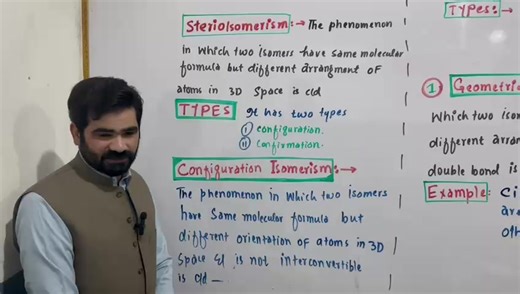 Sterioisomerism:→ The phenomenon
in which two isomers have same molecular
formula but different arrangment of
atoms in 3D Space is c/d
TYPES It has two types
(I) Configuration.
(II) Confirmation.
Configuration Isomerism:→
The phenomenon in which two isomers
have same molecular formula but
different orientation of atoms in 3D
Space & is not interconvertible
is c/d —
TYPES:→
(1) Geometric
Which two isom
different arran
double bond is
Example: Ci
ara
oth